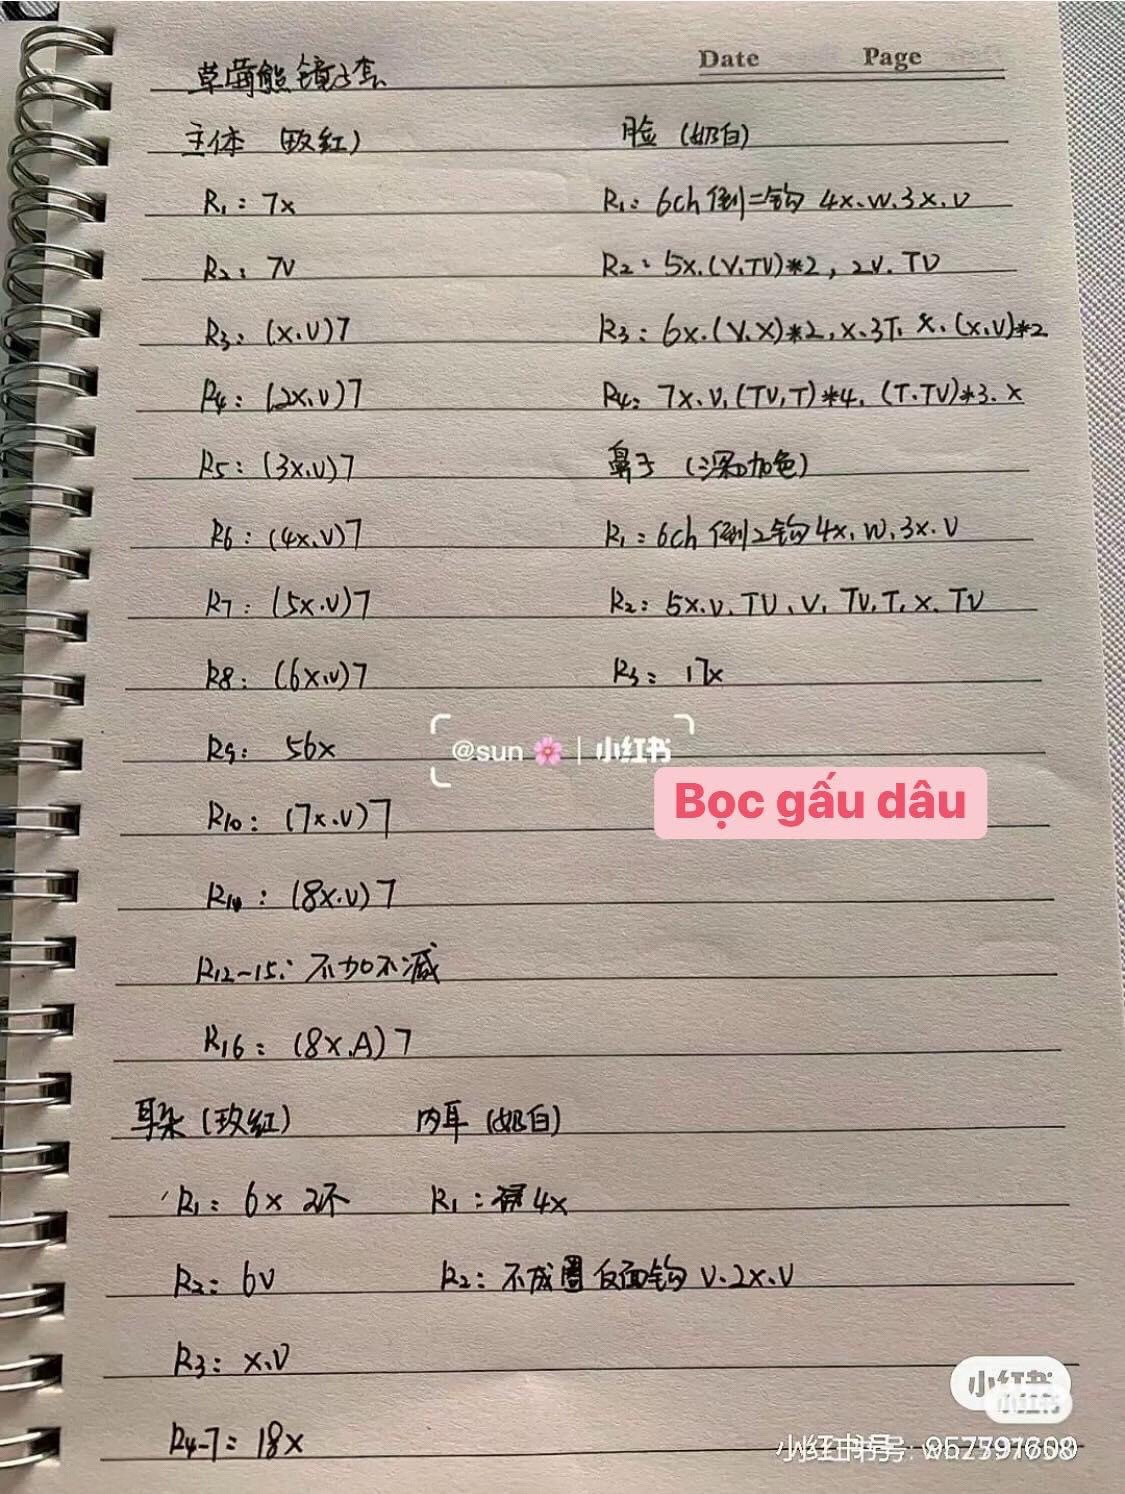 Date Page
草莓熊镜子套
主体 (玫红)
R1: 7x
R2: 7V
R3: (x.V)7
R4: (2x.V)7
R5: (3x.V)7
R6: (4x.V)7
R7: (5x.V)7
R8: (6x.V)7
R9: 56x
R10: (7x.V)7
R11: (8x.V)7
R12~15: 不加不减
R16: (8x.A)7
脸 (奶白)
R1: 6ch 倒二钩 4x.W.3x.V
R2: 5x.(V.TV)*2, 2V.TV
R3: 6x.(V.X)*2,x.3T.x.(x.V)*2
R4: 7x.V.(TV,T)*4.(T.TV)*3.x
鼻子 (深加色)
R1: 6ch 倒2钩4x.W.3x.V
R2: 5x.V.TV.V.TV.T.x.TV
R3: 17x
@sun🌸|小红书
Bọc gấu dâu
耳朵 (玫红)
R1: 6x 2环
R2: 6V
R3: x.V
R4-7: 18x
内耳 (奶白)
R1: 4x
R2: 不成圈 反面钩 V.2x.V
小红书
小红书